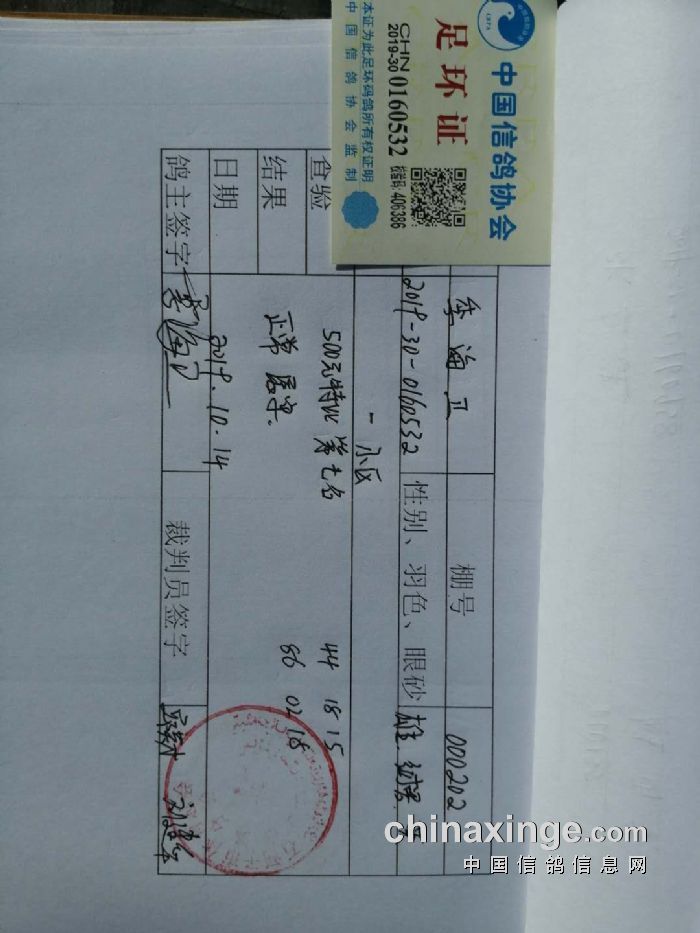 中国信鸽协会
足环证
CHN
2019-30 0160532
校验码: 406386
本证为此足环码鸽所有权证明
中国信鸽协会监制
海卫 棚号 000202
2019-30-0160532 性别、羽色、眼砂 雄
一小区
查验 500元特比 第七名 44 18 15
结果 正常 86 02 18
日期 2019.10.14
鸽主签字 裁判员签字
chinaxinge.com
中国信鸽信息网